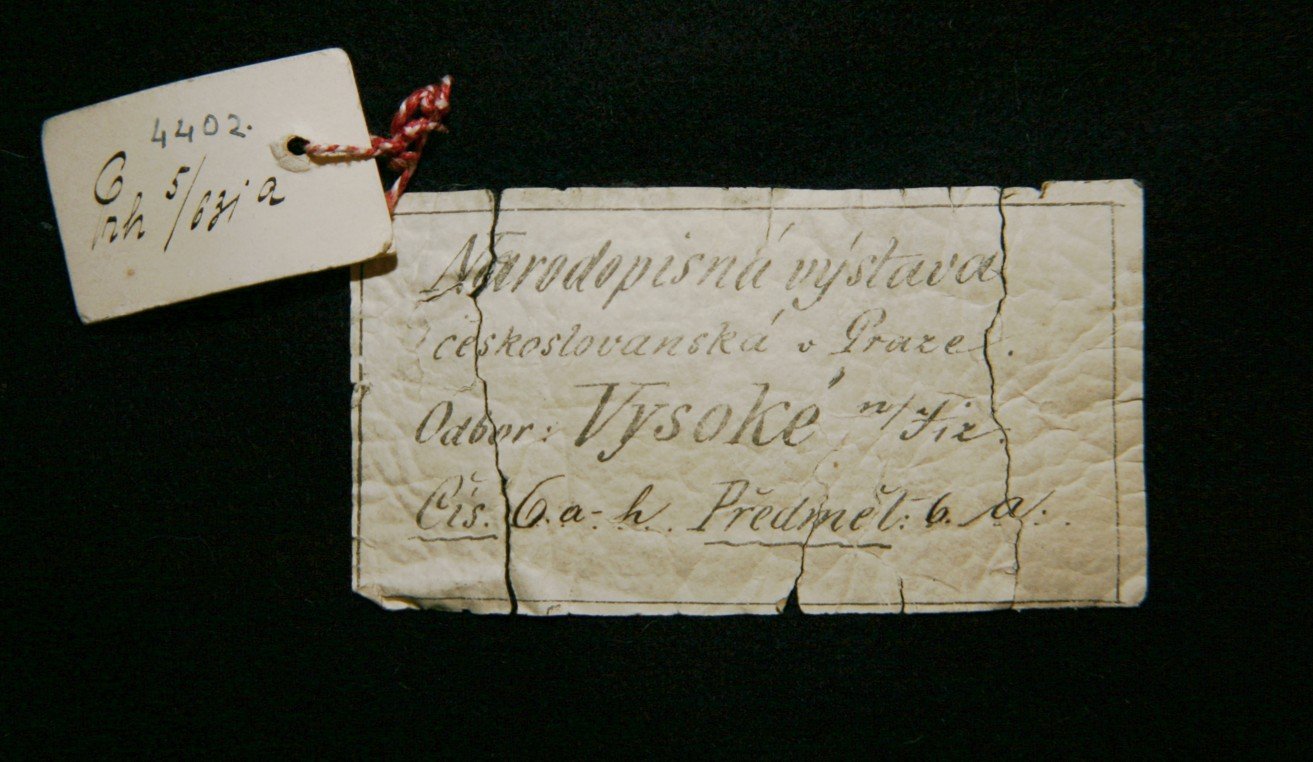 4402.
5/63j a
Národopisná výstava
českoslovanská v Praze.
Odbor: Vysoké n/Jiz.
Čís. 6.a-h. Předmět: 6. a.